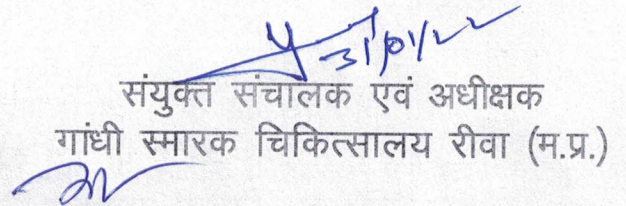 31/01/22
संयुक्त संचालक एवं अधीक्षक
गांधी स्मारक चिकित्सालय रीवा (म.प्र.)